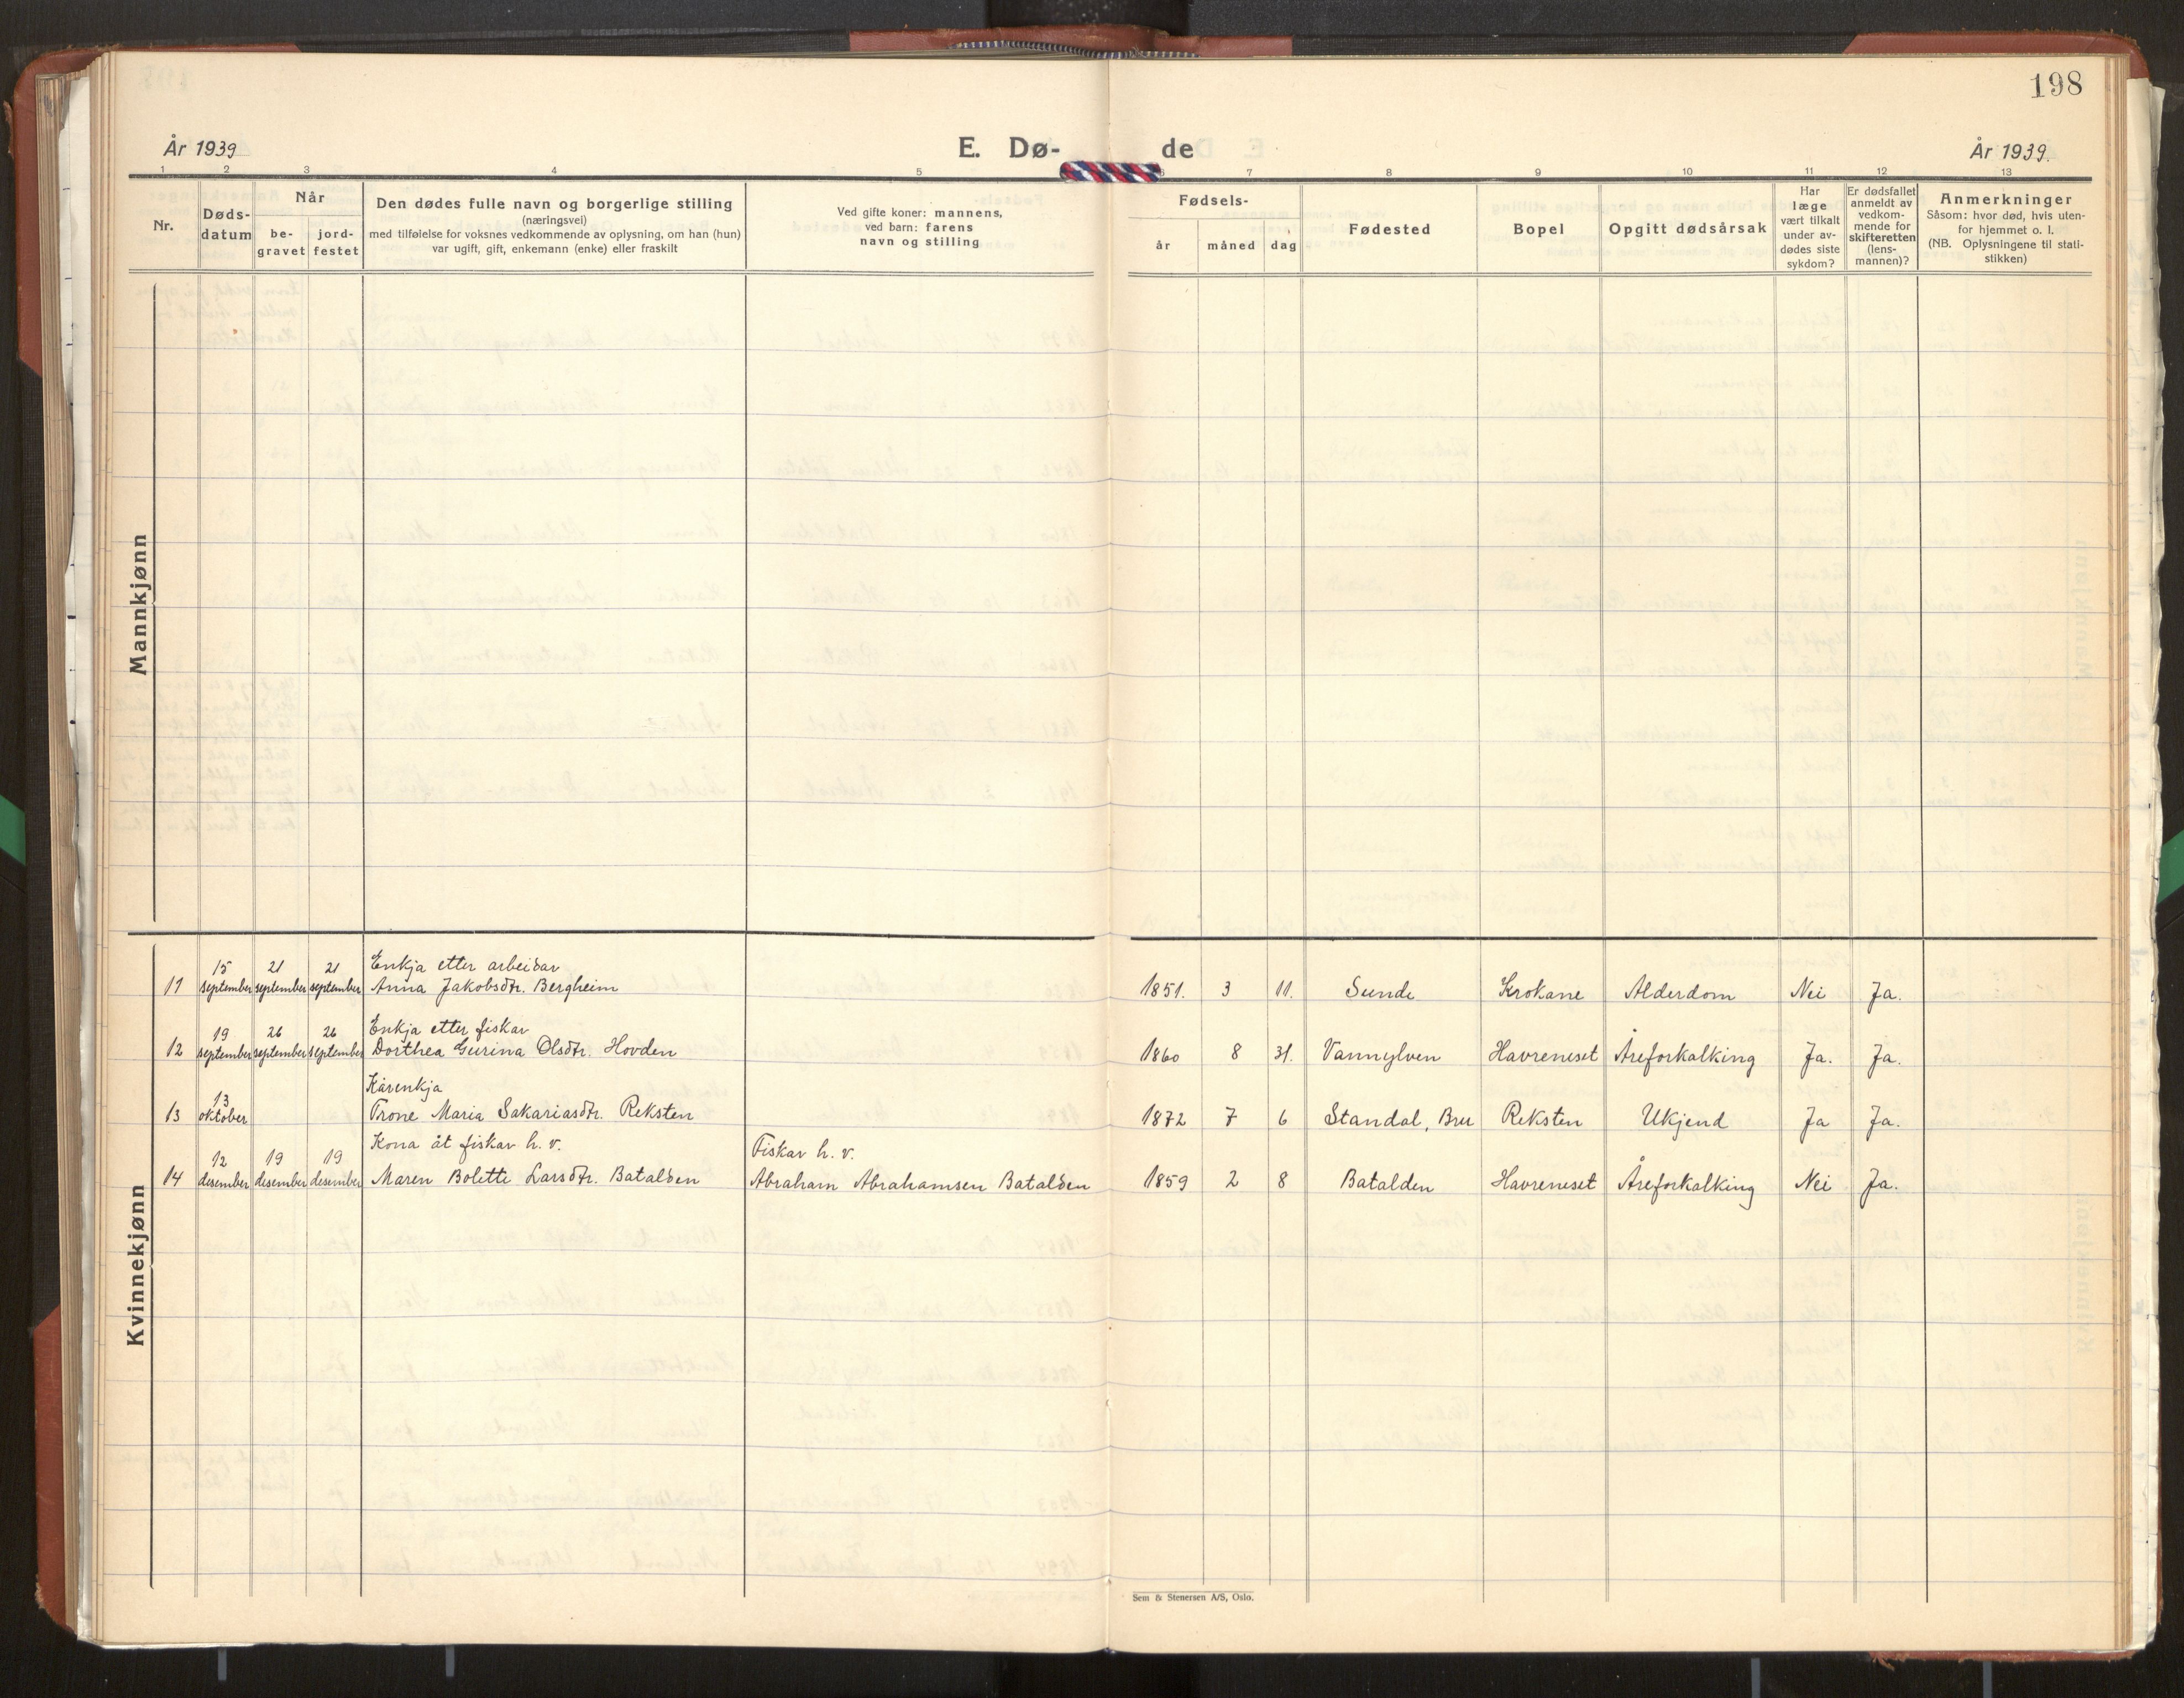 198
År 1939
E. Dø-
de
År 1939.
1 2 3 4 5 6 7 8 9 10 11 12 13
Nr.
Døds-
datum
Når
be-
gravet
jord-
festet
Den dødes fulle navn og borgerlige stilling
(næringsvei)
med tilføielse for voksnes vedkommende av oplysning, om han (hun)
var ugift, gift, enkemann (enke) eller fraskilt
Ved gifte koner: mannens,
ved barn: farens
navn og stilling
Fødsels-
år
måned
dag
Fødested
Bopel
Opgitt dødsårsak
Har
læge
vært tilkalt
under av-
dødes siste
sykdom?
Er dødsfallet
anmeldt av
vedkom-
mende for
skifteretten
(lens-
mannen)?
Anmerkninger
Såsom: hvor død, hvis uten-
for hjemmet o. l.
(NB. Oplysningene til stati-
stikken)
Mannkjønn
Kvinnekjønn
15 21 21 Enkja etter arbeidar
11 september september september Anna Jakobsdtr. Bergheim 1851. 3 11. Sunde Krokane Alderdom Nei Ja.
19 26 26 Enkja etter fiskar
12 september september september Dorthea Gurina Olsdtr. Hovden 1860 8 31. Vannylven Havreneset Åreforkalking Ja. Ja.
13 Kårenkja
13 oktober Trone Maria Sakariasdtr. Reksten 1872 7 6 Standal, Bru Reksten Ukjend Ja Ja.
12 19 19 Kona åt fiskar h. v. Fiskar h. v.
14 desember desember desember Maren Bolette Larsdtr. Batalden Abraham Abrahamsen Batalden 1859 2 8 Batalden Havreneset Åreforkalking Nei Ja.
Sem & Stenersen A/S, Oslo.